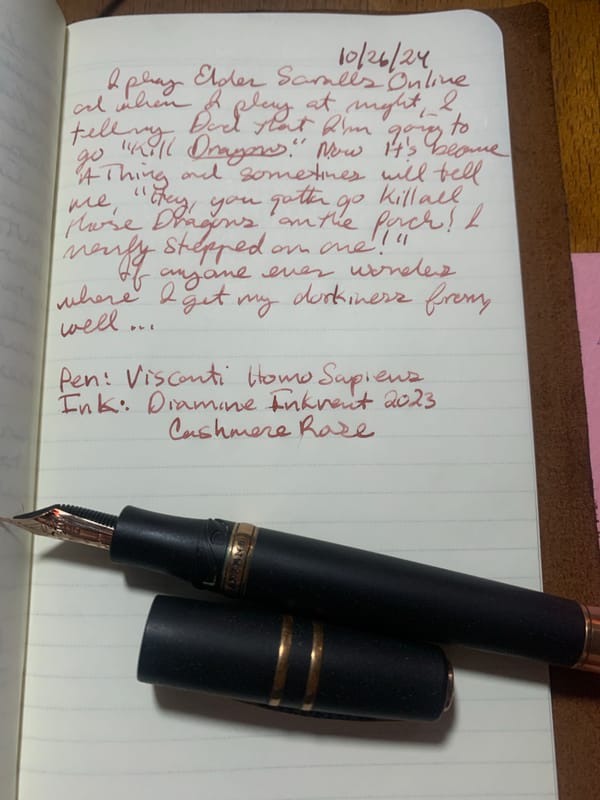 10/26/24
I play Elder Scrolls Online
ad when I play at night, I
tell my Dad that I'm going to
go "Kill Dragons." Now it's become
A Thing and sometimes will tell
me, "Hey, you gotta go kill all
those Dragons on the Porch! I
nearly stepped on one!"
If anyone ever wonders
where I get my dorkiness from,
well...
Pen: Visconti Homo Sapiens
Ink: Diamine Inkvent 2023
Cashmere Rose